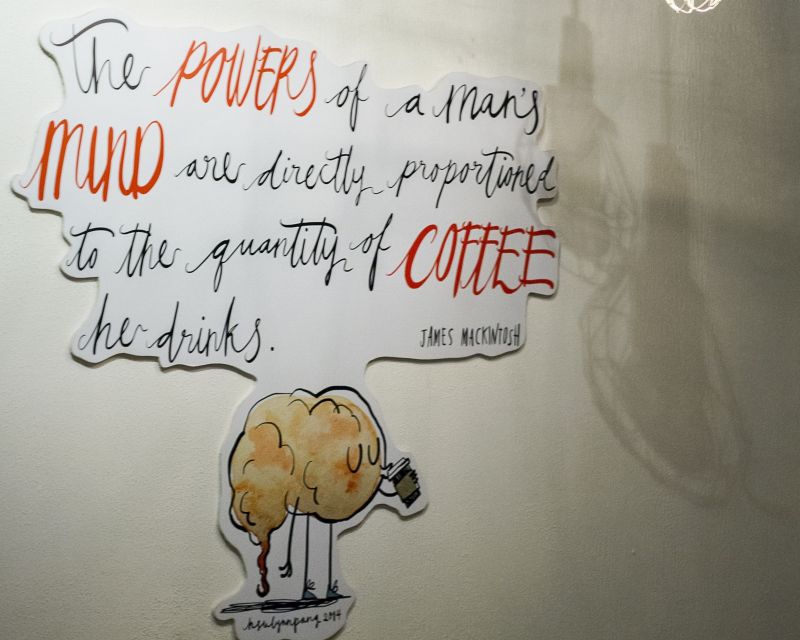 The POWERS of a man's
MIND are directly proportioned
to the quantity of COFFEE
he drinks.
JAMES MACKINTOSH
2014